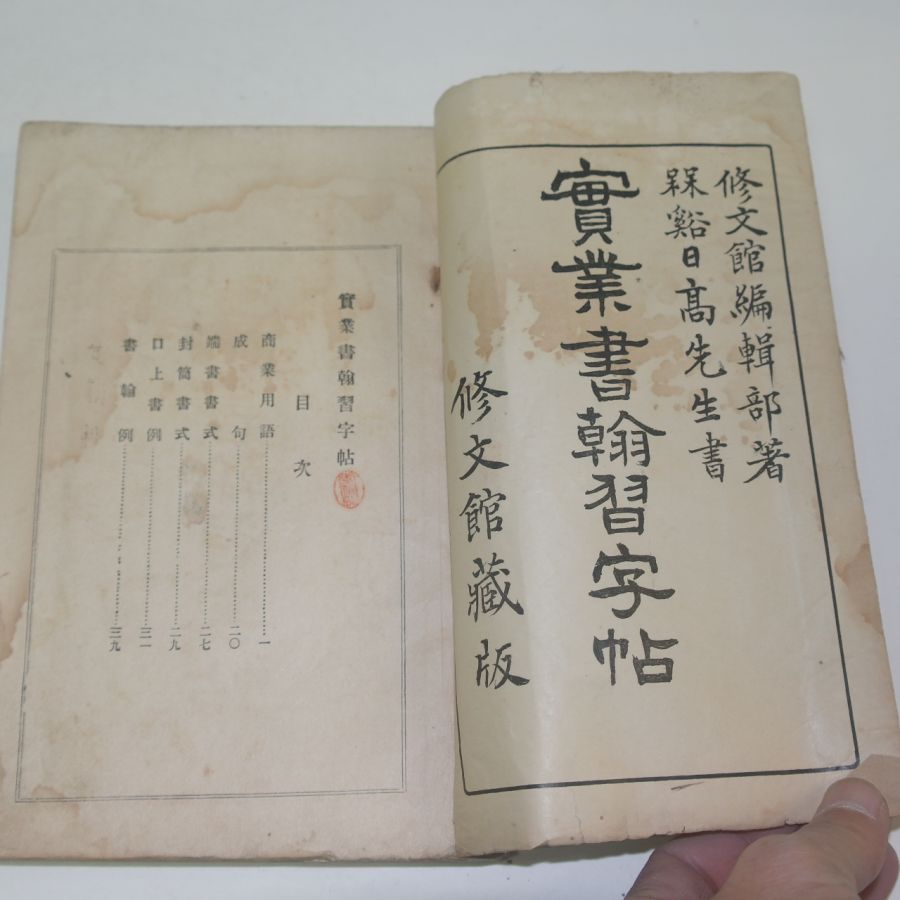 修文館編輯部著
槑谿日髙先生書
實業書翰習字帖
修文館藏版
實業書翰習字帖
目次
商業用語……一
成句……二〇
端書書式……二七
封筒書式……二九
口上書例……三一
書翰例……三九